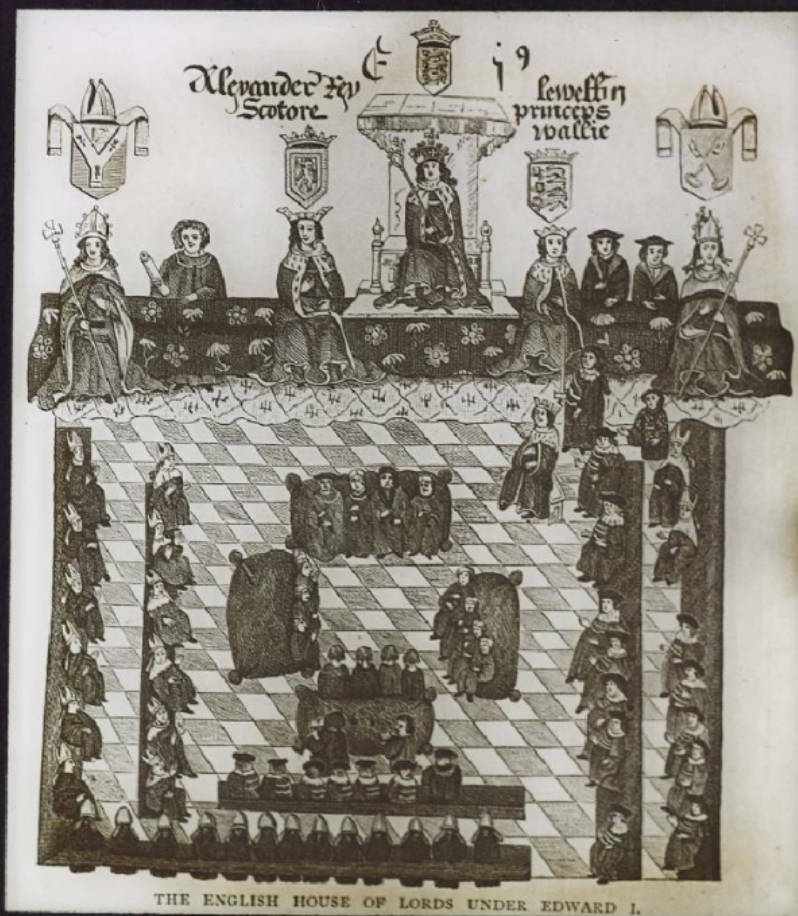 Alexander Rey
Scotore
E
j 9
lewellin
princeps
wallie
THE ENGLISH HOUSE OF LORDS UNDER EDWARD I.